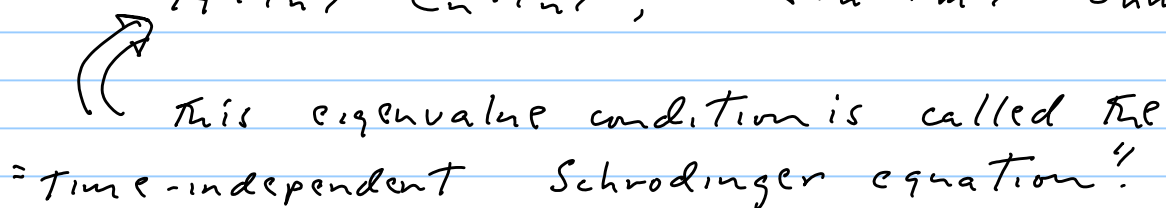 This eigenvalue condition is called the
"Time-independent Schrodinger equation".